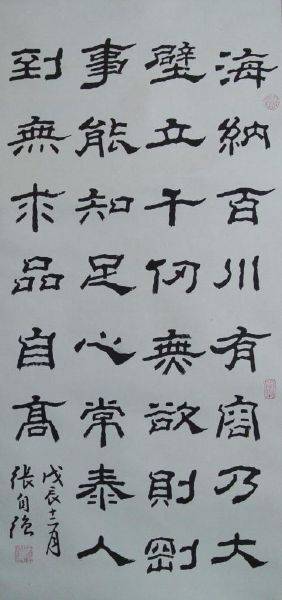 海納百川有容乃大
壁立千仞無欲則剛
事能知足心常泰人
到無求品自高
戊辰十二月
張自強